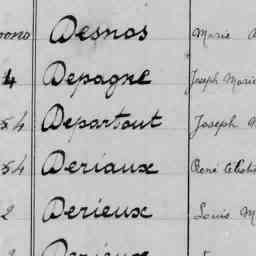 Desnos Marie
4 Depagne Joseph Marie
54 Departout Joseph
54 Deriaux René
2 Derieux Louis M